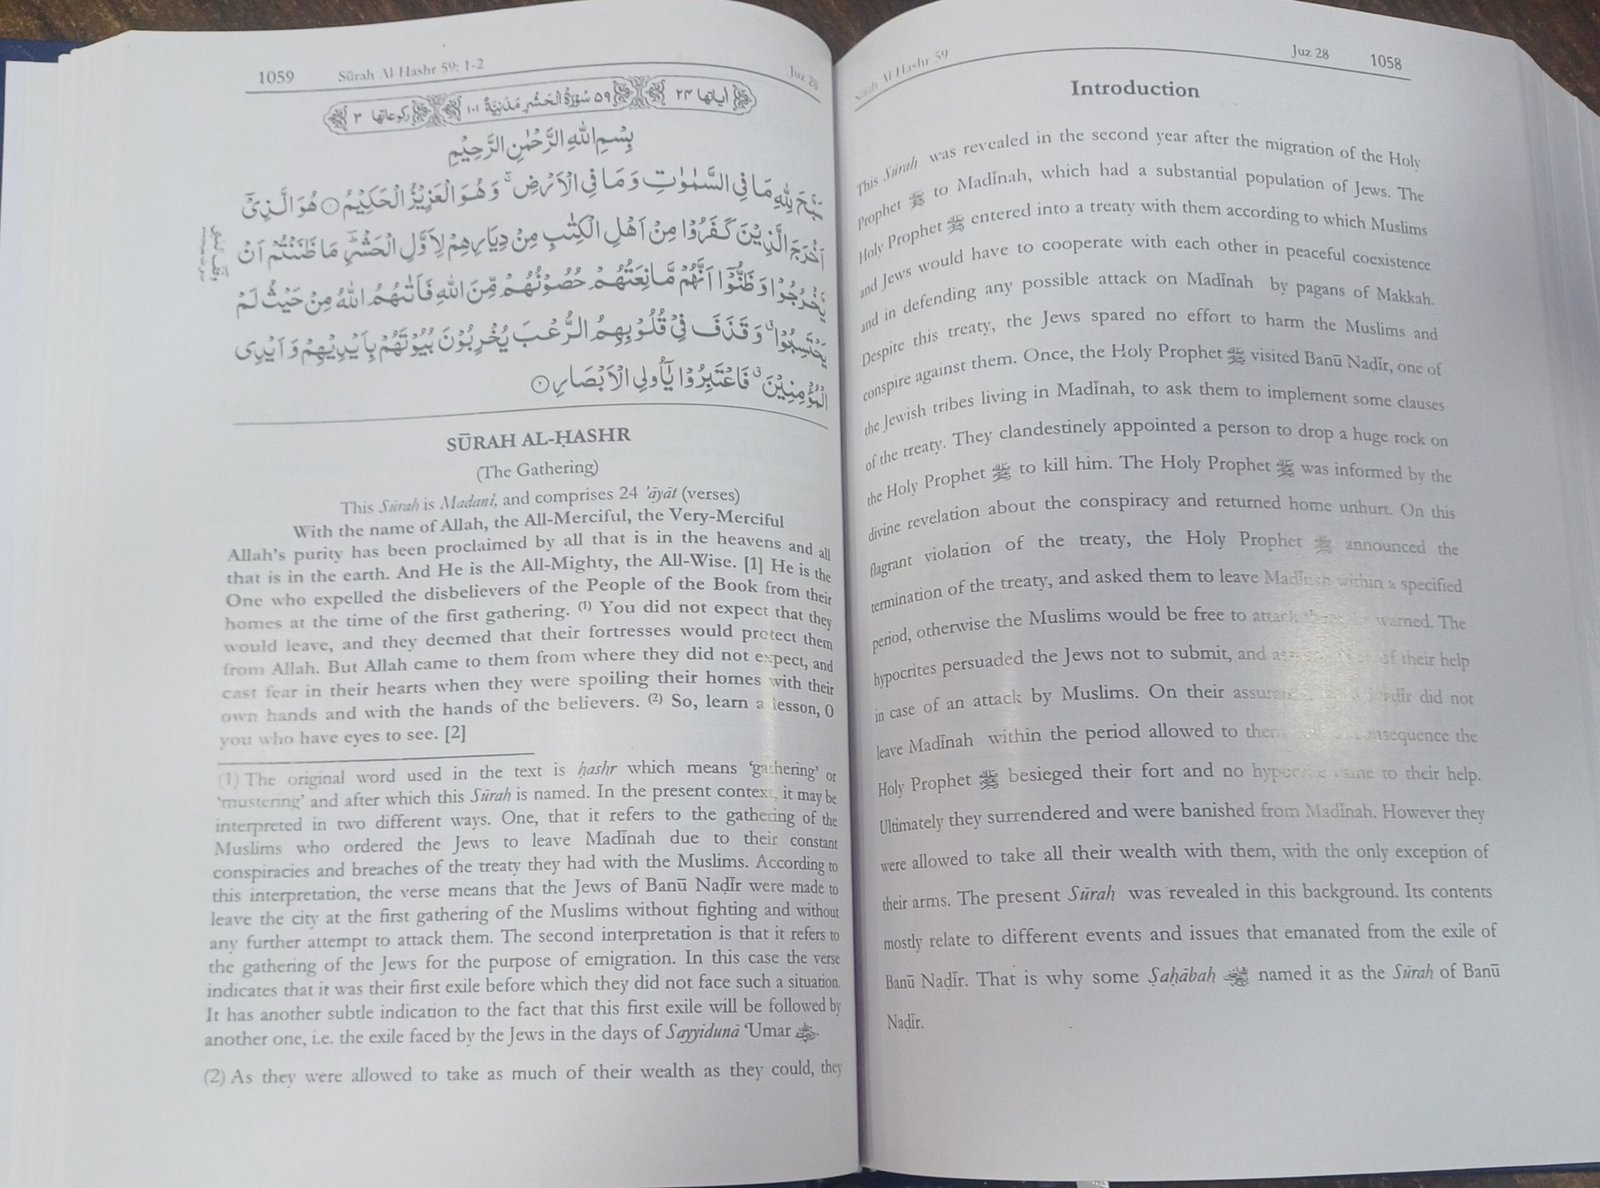 Sūrah Al-Hashr 59 Juz 28 1058
Introduction
This Sūrah was revealed in the second year after the migration of the Holy
Prophet ﷺ to Madīnah, which had a substantial population of Jews. The
Holy Prophet ﷺ entered into a treaty with them according to which Muslims
and Jews would have to cooperate with each other in peaceful coexistence
and in defending any possible attack on Madīnah by pagans of Makkah.
Despite this treaty, the Jews spared no effort to harm the Muslims and
conspire against them. Once, the Holy Prophet ﷺ visited Banū Naḍīr, one of
the Jewish tribes living in Madīnah, to ask them to implement some clauses
of the treaty. They clandestinely appointed a person to drop a huge rock on
the Holy Prophet ﷺ to kill him. The Holy Prophet ﷺ was informed by the
divine revelation about the conspiracy and returned home unhurt. On this
flagrant violation of the treaty, the Holy Prophet ﷺ announced the
termination of the treaty, and asked them to leave Madīnah within a specified
period, otherwise the Muslims would be free to attack warned. The
hypocrites persuaded the Jews not to submit, and of their help
in case of an attack by Muslims. On their did not
leave Madīnah within the period allowed to consequence the
Holy Prophet ﷺ besieged their fort and no to their help.
Ultimately they surrendered and were banished from Madīnah. However they
were allowed to take all their wealth with them, with the only exception of
their arms. The present Sūrah was revealed in this background. Its contents
mostly relate to different events and issues that emanated from the exile of
Banū Naḍīr. That is why some Ṣaḥābah named it as the Sūrah of Banū
Naḍīr.
1059 Sūrah Al-Hashr 59: 1-2 Juz 28
اٰیاتها ۲۴ ۵۹ سُوْرَةُ الْحَشْرِ مَدَنِيَّةٌ ۱۰۱ رکوعاتها ۳
بِسْمِ اللّٰهِ الرَّحْمٰنِ الرَّحِيْمِ
سَبَّحَ لِلّٰهِ مَا فِي السَّمٰوٰتِ وَمَا فِي الْاَرْضِ ۚ وَهُوَ الْعَزِيْزُ الْحَكِيْمُ ۝ هُوَ الَّذِيْۤ
اَخْرَجَ الَّذِيْنَ كَفَرُوْا مِنْ اَهْلِ الْكِتٰبِ مِنْ دِيَارِهِمْ لِاَوَّلِ الْحَشْرِ ؕ مَا ظَنَنْتُمْ اَنْ
يَّخْرُجُوْا وَظَنُّوْۤا اَنَّهُمْ مَّانِعَتُهُمْ حُصُوْنُهُمْ مِّنَ اللّٰهِ فَاَتٰىهُمُ اللّٰهُ مِنْ حَيْثُ لَمْ
يَحْتَسِبُوْا ۗ وَقَذَفَ فِيْ قُلُوْبِهِمُ الرُّعْبَ يُخْرِبُوْنَ بُيُوْتَهُمْ بِاَيْدِيْهِمْ وَاَيْدِي
الْمُؤْمِنِيْنَ ۗ فَاعْتَبِرُوْا يٰۤاُولِي الْاَبْصَارِ ۝
SŪRAH AL-ḤASHR
(The Gathering)
This Sūrah is Madanī, and comprises 24 'āyāt (verses)
With the name of Allah, the All-Merciful, the Very-Merciful
Allah's purity has been proclaimed by all that is in the heavens and all
that is in the earth. And He is the All-Mighty, the All-Wise. [1] He is the
One who expelled the disbelievers of the People of the Book from their
homes at the time of the first gathering. (1) You did not expect that they
would leave, and they deemed that their fortresses would protect them
from Allah. But Allah came to them from where they did not expect, and
cast fear in their hearts when they were spoiling their homes with their
own hands and with the hands of the believers. (2) So, learn a lesson, O
you who have eyes to see. [2]
(1) The original word used in the text is ḥashr which means 'gathering' or
'mustering' and after which this Sūrah is named. In the present context, it may be
interpreted in two different ways. One, that it refers to the gathering of the
Muslims who ordered the Jews to leave Madīnah due to their constant
conspiracies and breaches of the treaty they had with the Muslims. According to
this interpretation, the verse means that the Jews of Banū Naḍīr were made to
leave the city at the first gathering of the Muslims without fighting and without
any further attempt to attack them. The second interpretation is that it refers to
the gathering of the Jews for the purpose of emigration. In this case the verse
indicates that it was their first exile before which they did not face such a situation.
It has another subtle indication to the fact that this first exile will be followed by
another one, i.e. the exile faced by the Jews in the days of Sayyidunā 'Umar
(2) As they were allowed to take as much of their wealth as they could, they